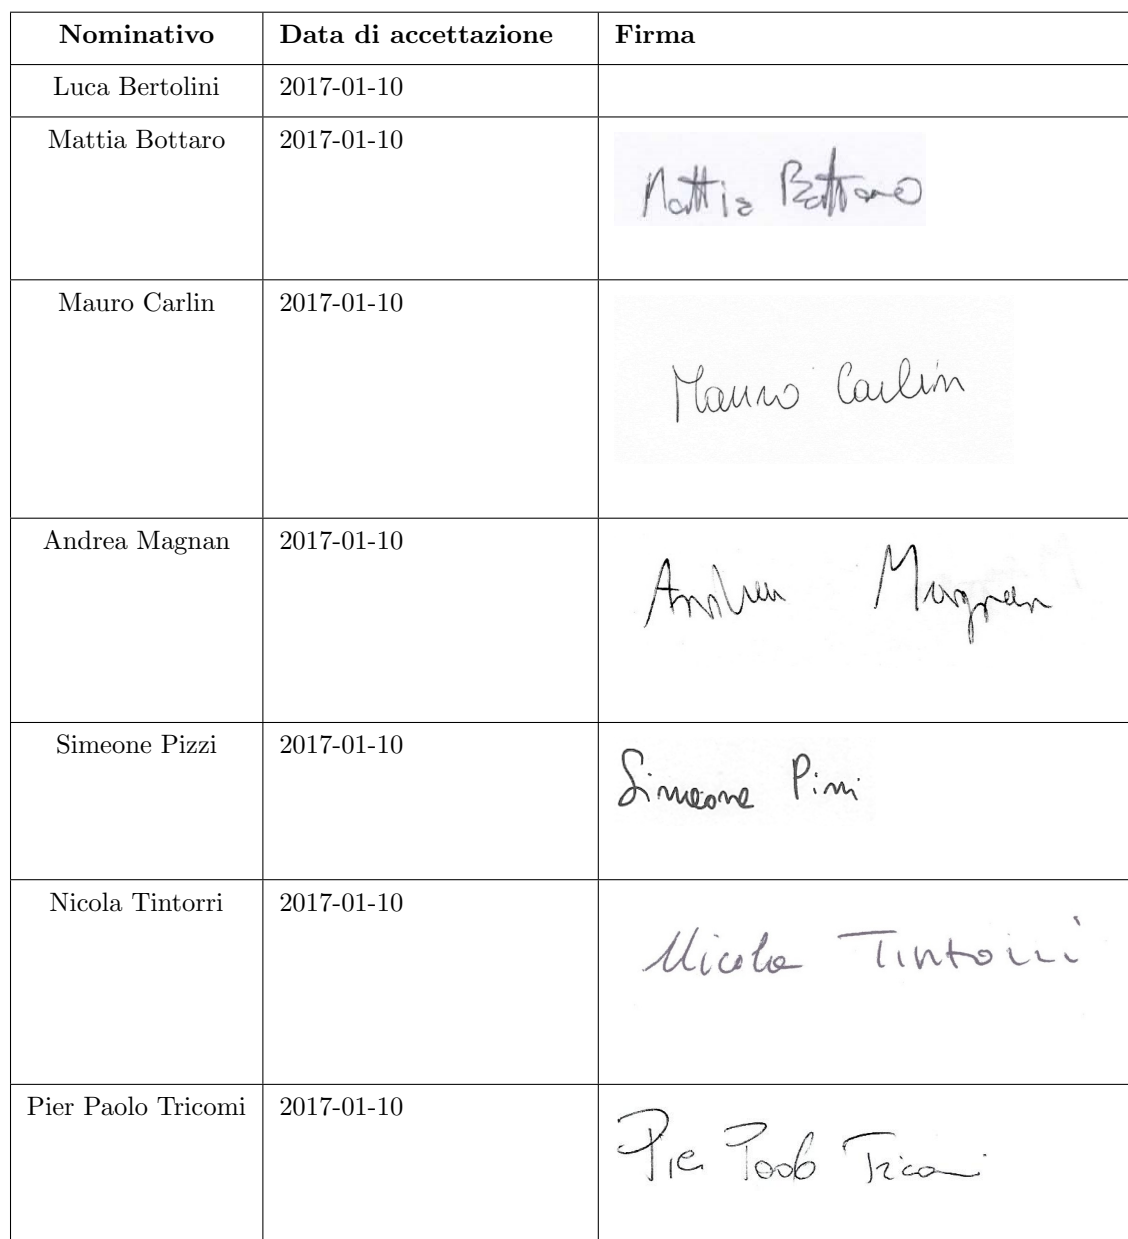 Nominativo Data di accettazione Firma
Luca Bertolini 2017-01-10
Mattia Bottaro 2017-01-10 Mattia Bottaro
Mauro Carlin 2017-01-10 Mauro Carlin
Andrea Magnan 2017-01-10 Andrea Magnan
Simeone Pizzi 2017-01-10 Simeone Pizzi
Nicola Tintorri 2017-01-10 Nicola Tintorri
Pier Paolo Tricomi 2017-01-10 Pier Paolo Tricomi